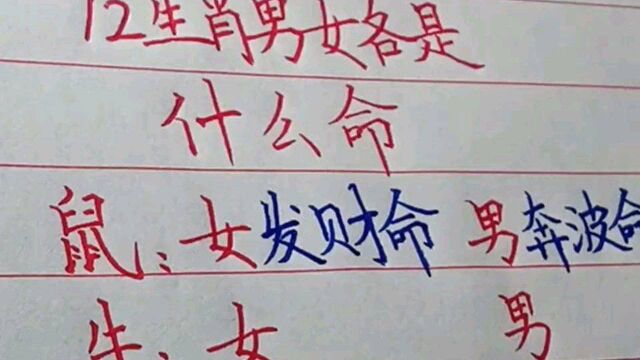 12生肖男女各是
什么命
鼠：女发财命 男奔波命
牛：女 男